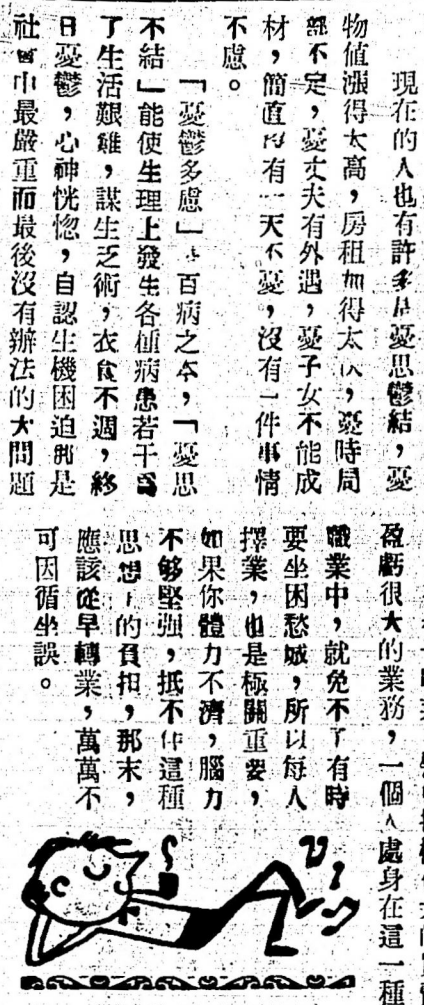 現在的人也有許多是憂思鬱結，憂
物値漲得太高，房租加得太大，憂時局
都不定，憂丈夫有外遇，憂子女不能成
材，簡直沒有一天不憂，沒有一件事情
不慮。
「憂鬱多慮」是百病之本，「憂思
不結」能使生理上發生各種病患若干爲
了生活艱難，謀生乏術，衣食不週，終
日憂鬱，心神恍惚，自認生機困迫那是
社會中最嚴重而最後沒有辦法的大問題
盈虧很大的業務，一個人處身在這一種
職業中，就免不了有時
要坐困愁城，所以每人
擇業，也是極關重要，
如果你體力不濟，腦力
不够堅强，抵不住這種
思想上的負担，那末，
應該從早轉業，萬萬不
可因循坐誤。